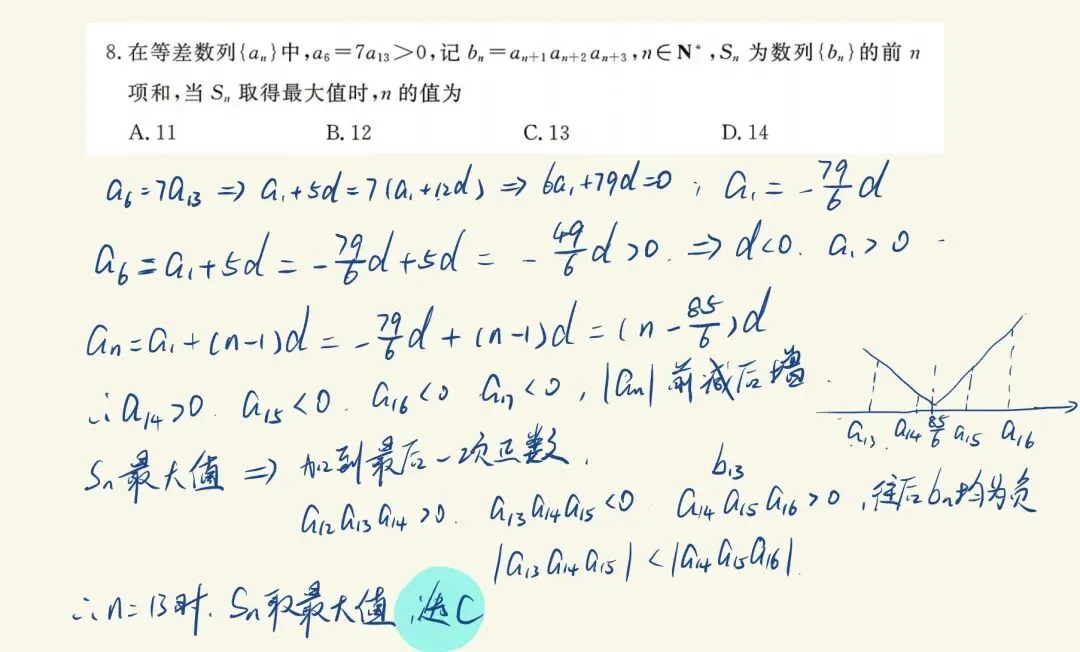 8. 在等差数列{aₙ}中,a₆=7a₁₃>0,记 bₙ=aₙ₊₁aₙ₊₂aₙ₊₃,n∈N*,Sₙ 为数列{bₙ}的前 n
项和,当 Sₙ 取得最大值时,n 的值为
A. 11 B. 12 C. 13 D. 14
a₆=7a₁₃ ⇒ a₁+5d=7(a₁+12d) ⇒ 6a₁+79d=0 ; a₁=-79/6 d
a₆=a₁+5d=-79/6 d+5d=-49/6 d>0. ⇒ d<0. a₁>0
aₙ=a₁+(n-1)d=-79/6 d+(n-1)d=(n-85/6)d
∴a₁₄>0. a₁₅<0. a₁₆<0 a₁₇<0, |aₙ| 前减后增.
a₁₃ a₁₄ 85/6 a₁₅ a₁₆
Sₙ最大值 ⇒ 加到最后一次正数,
b₁₃
a₁₂a₁₃a₁₄>0. a₁₃a₁₄a₁₅<0 a₁₄a₁₅a₁₆>0,往后bₙ均为负
|a₁₃a₁₄a₁₅|<|a₁₄a₁₅a₁₆|.
∴n=13时. Sₙ取最大值,选C